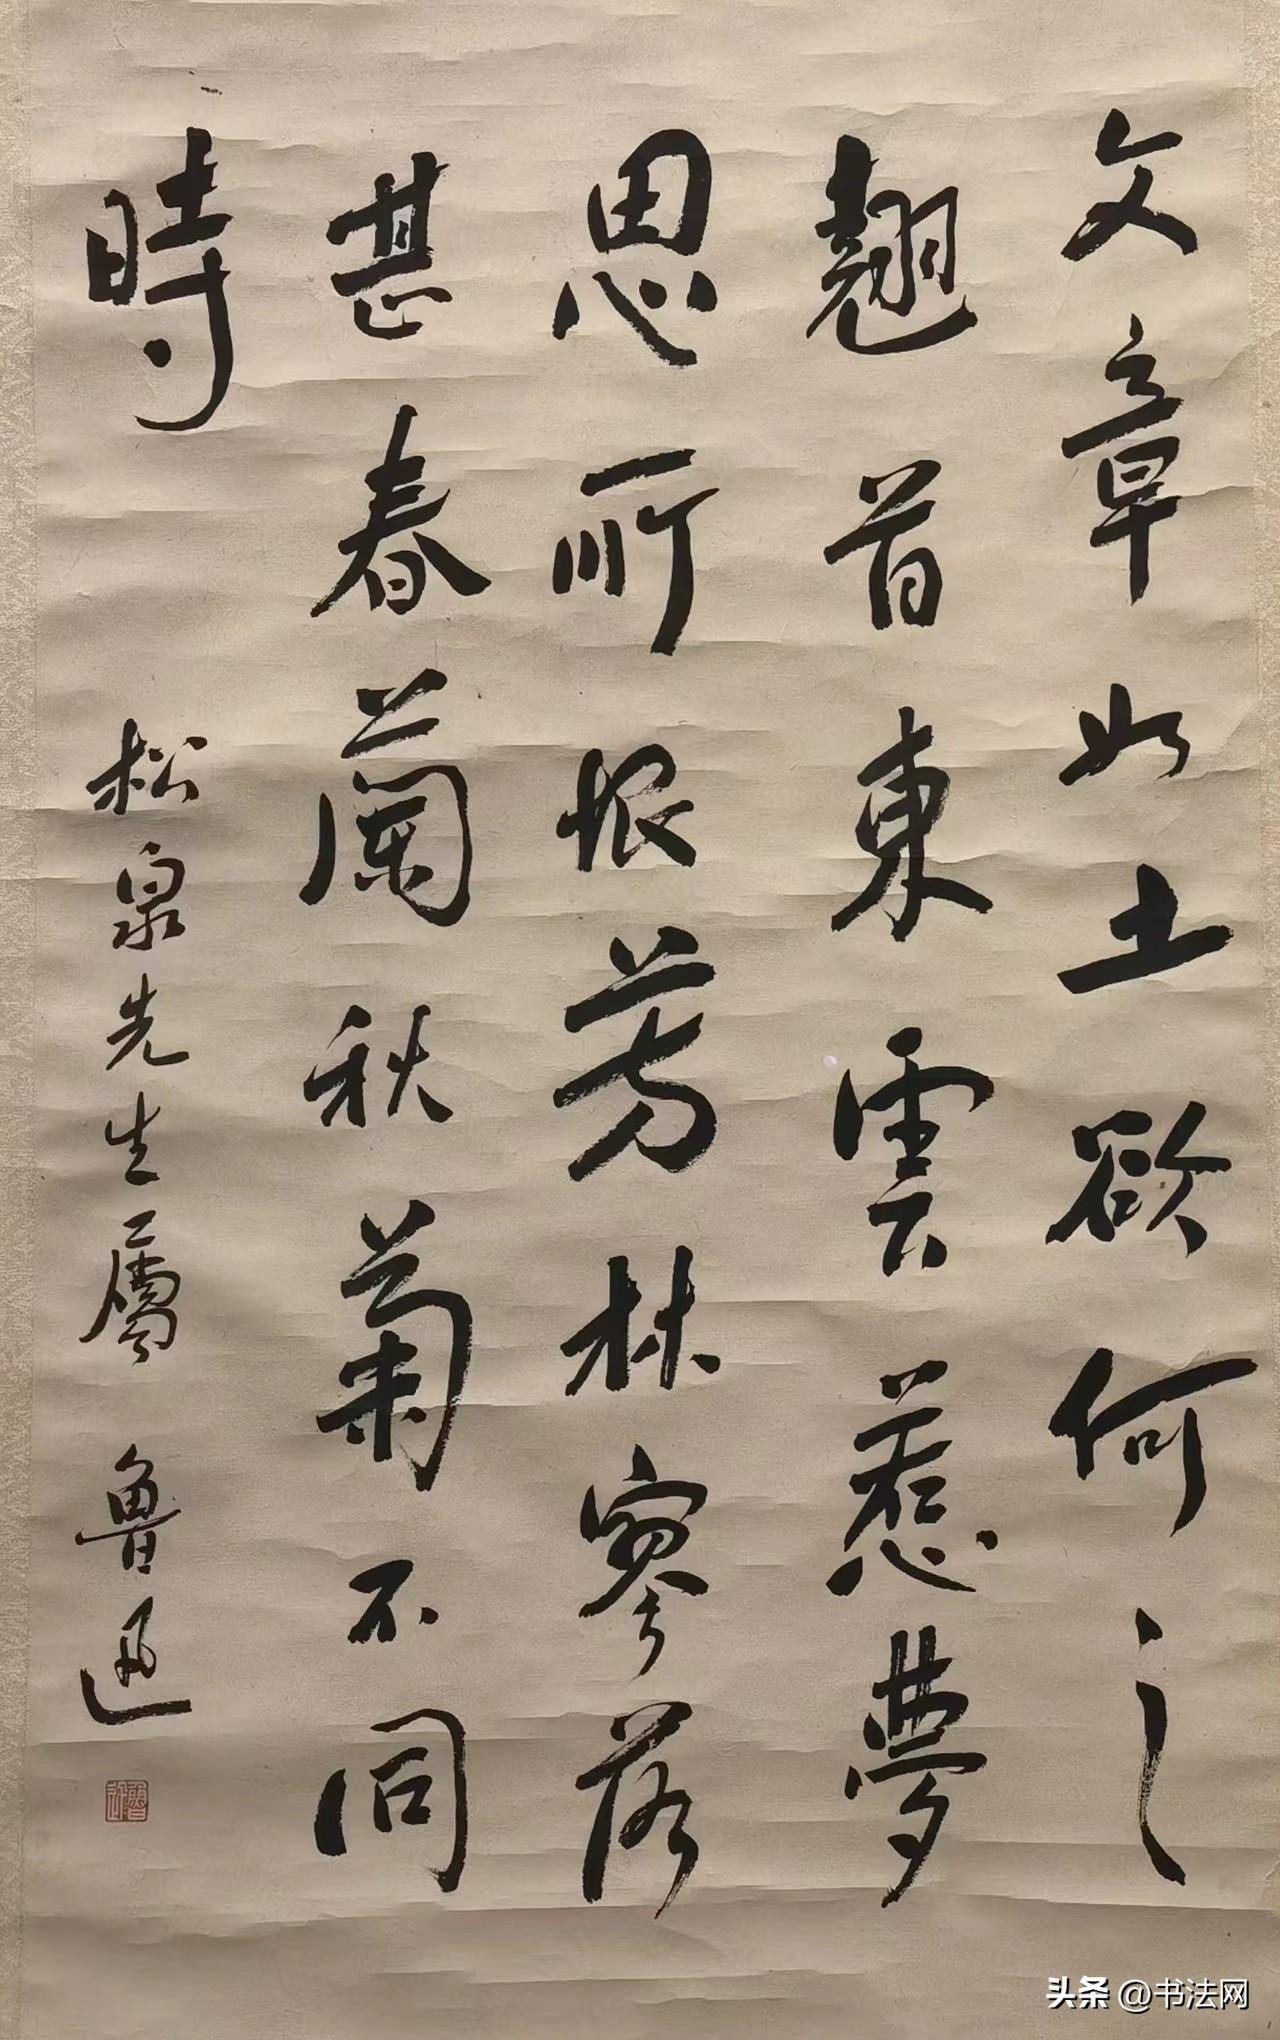 文章如土欲何之
翹首東雲惹夢
思所恨芳林寥落
甚春蘭秋菊不同
時
松泉先生屬
魯迅
魯迅
头条 @书法网